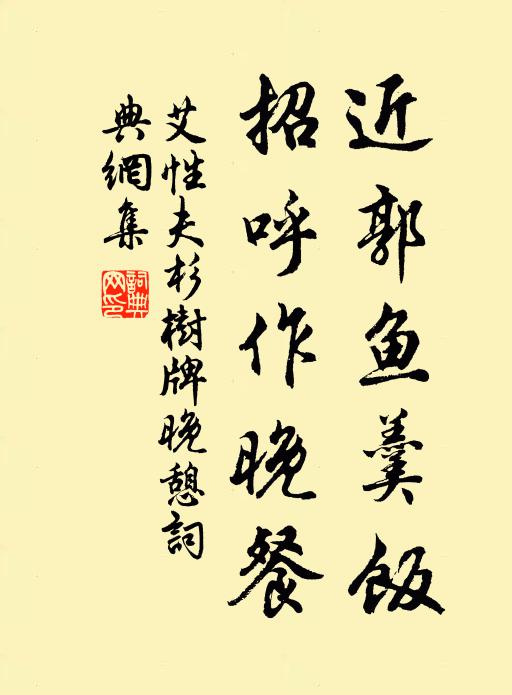 近郭鱼羹饭
招呼作晚餐
艾性夫杉樹牌晚憩詞
典網集
詞典網印